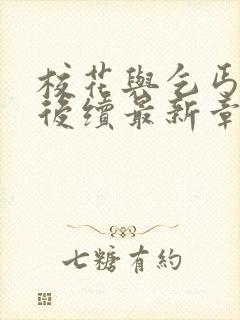 校花與乞丐
後續最新章
七糖有約